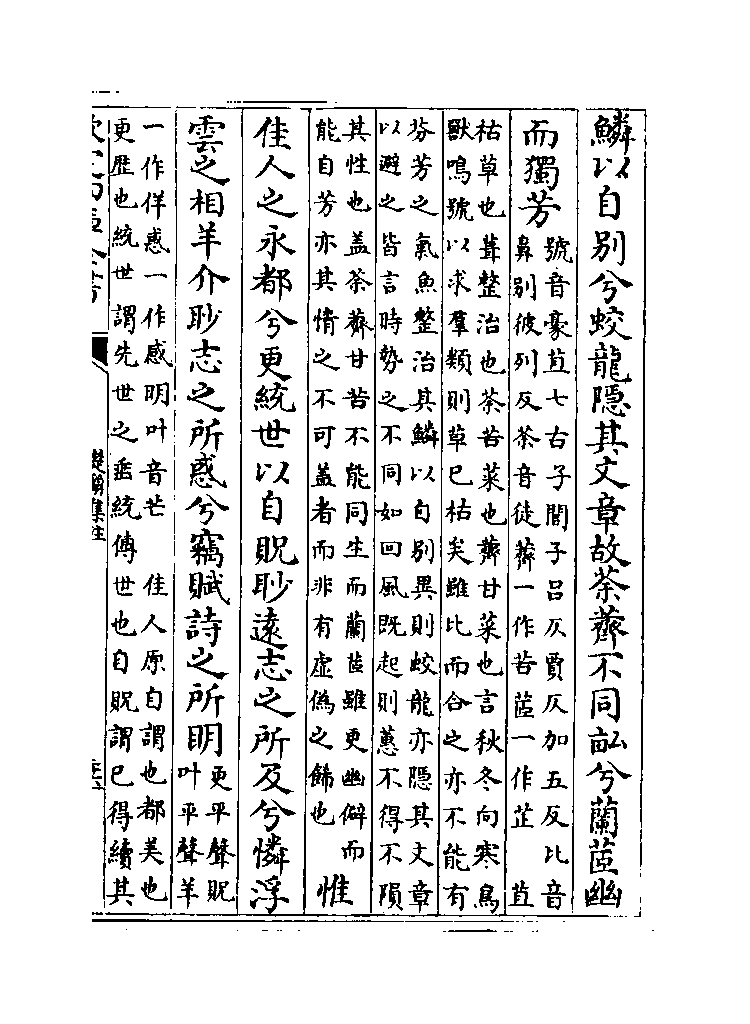 鱗以自别兮蛟龍隠其文章故荼薺不同畝兮蘭茝幽
而獨芳
號音豪苴七古子閭子吕仄賈仄加五反比音
鼻别彼列反荼音徒薺一作苦茝一作芷　苴
枯草也葺整治也荼苦菜也薺甘菜也言秋冬向寒鳥
獸鳴號以求羣類則草已枯矣雖比而合之亦不能有
芬芳之氣魚整治其鱗以自别異則蛟龍亦隠其文章
以避之皆言時勢之不同如回風既起則蕙不得不隕
其性也盖荼薺甘苦不能同生而蘭茝雖更幽僻而
能自芳亦其情之不可盖者而非有虚偽之飾也
惟
佳人之永都兮更統世以自貺眇遠志之所及兮憐浮
雲之相羊介眇志之所惑兮竊賦詩之所明
更平聲貺
叶平聲羊
一作佯惑一作感明叶音芒　佳人原自謂也都美也
更歴也統世謂先世之垂統傳世也自貺謂已得續其
楚辭集注